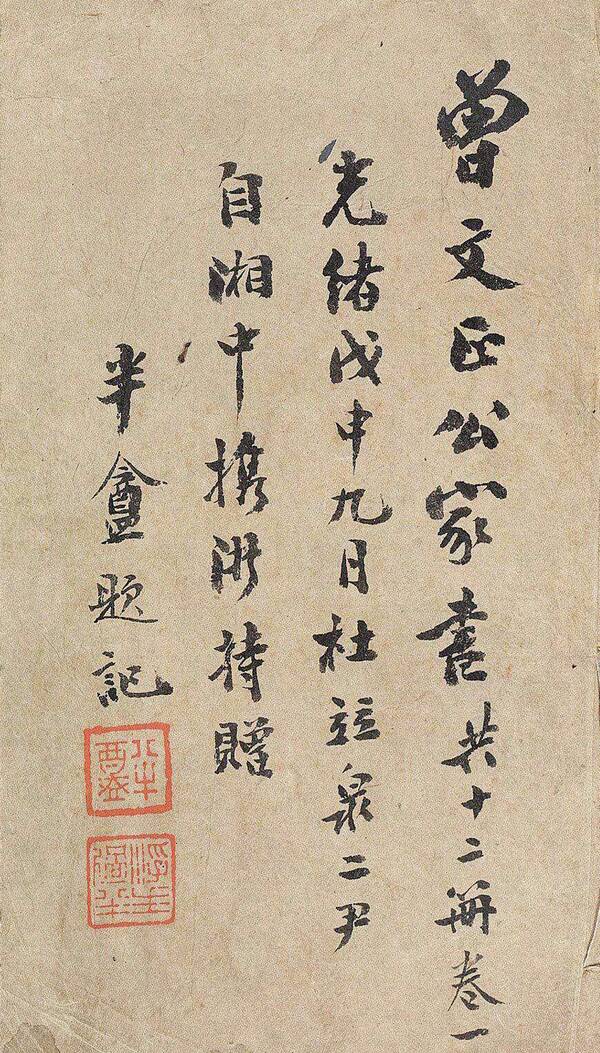 曾文正公家書共十二册卷一
光緒戊申九日杜竝泉二尹
自湘中携浙持贈
半盦題記